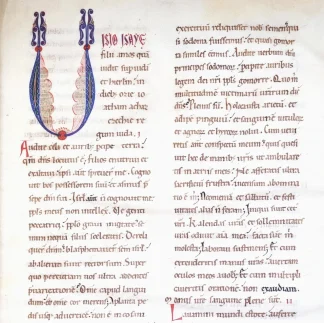 ISIO ISAYE
filii amos quã
uidit sup iudã
et hierlm. in
dieb; ozie io
athan achaz
ezechie re
gum iuda. I
Audite celi et aurib; pcipe terra.
qm dñs locutus ē. filios enutriui et
exaltaui. ipsi aut spreuer me. Cogno
uit bos possessorem suũ et asinus p
sepe dñi sui. Isrl aut n cognouit me
pplo meus non intellex. Ve genti
peccatrici. pplo graui iniquitate. se
mini nequã. filiis sceleratis. Dereliq
uer dñm. blasphemauer scm isrl.
abalienati sunt retrorsum. Super
quo percutiam uos ultra. addentes
puaricatione. Omne caput languidum
et omne cor merens. A planta pe
dis usq; ad uerticē. non ē in eo
exercituũ reliquisset nob semen. qua
si sodoma fuissemus. et quasi gomor
ra similes essem. Audite uerbum dñi
principes sodomor. pcipite aurib;
legem dei nri ppls gomorre. Quo m
multitudinē uictimarũ urarum dic
dñs. Plenus sũ. Holocausta arietũ. et
adipē pinguiũ. et sanguinē uitulor.
et agnor et hyrcor nolui. Cum ueni
retis ante conspectũ meum. quis quesi
uit hec de manib; uris. ut ambulare
tis in atriis meis. Ne afferatis ultra
sacrificiũ frustra. Incensum abomina
tio ē m. Neomenia et sabbatũ. et festi
uitates alias n feram. Iniqui sunt cet
uri. Kalendas uras et sollemnitates
uras odiuit aīa mea. facta sunt m
molesta. laboraui sustinens. Et cum
extenderitis manus uras. auertam
oculos meos a uob. Et cum multipli
caueritis orationē. non exaudiam.
Manus ure sanguine plene sunt. II
Lauamini mundi estote. auferte